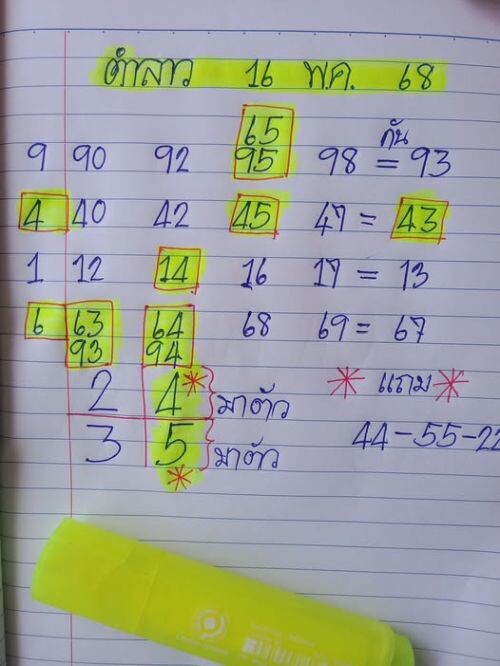 ตำลาว 16 พ.ค. 68
65 กัน
9 90 92 95 98 = 93
4 40 42 45 47 = 43
1 12 14 16 17 = 13
6 63 64 68 69 = 67
93 94
2 4* มาตัว * แถม *
3 5 มาตัว 44-55-22
*